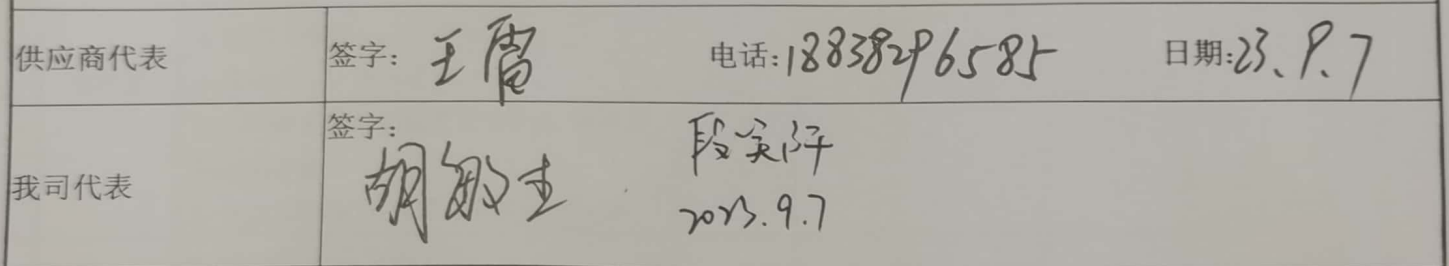 供应商代表 签字: 王雷 电话:18838296585 日期:23.9.7
签字:
我司代表 胡敏生 段
2023.9.7